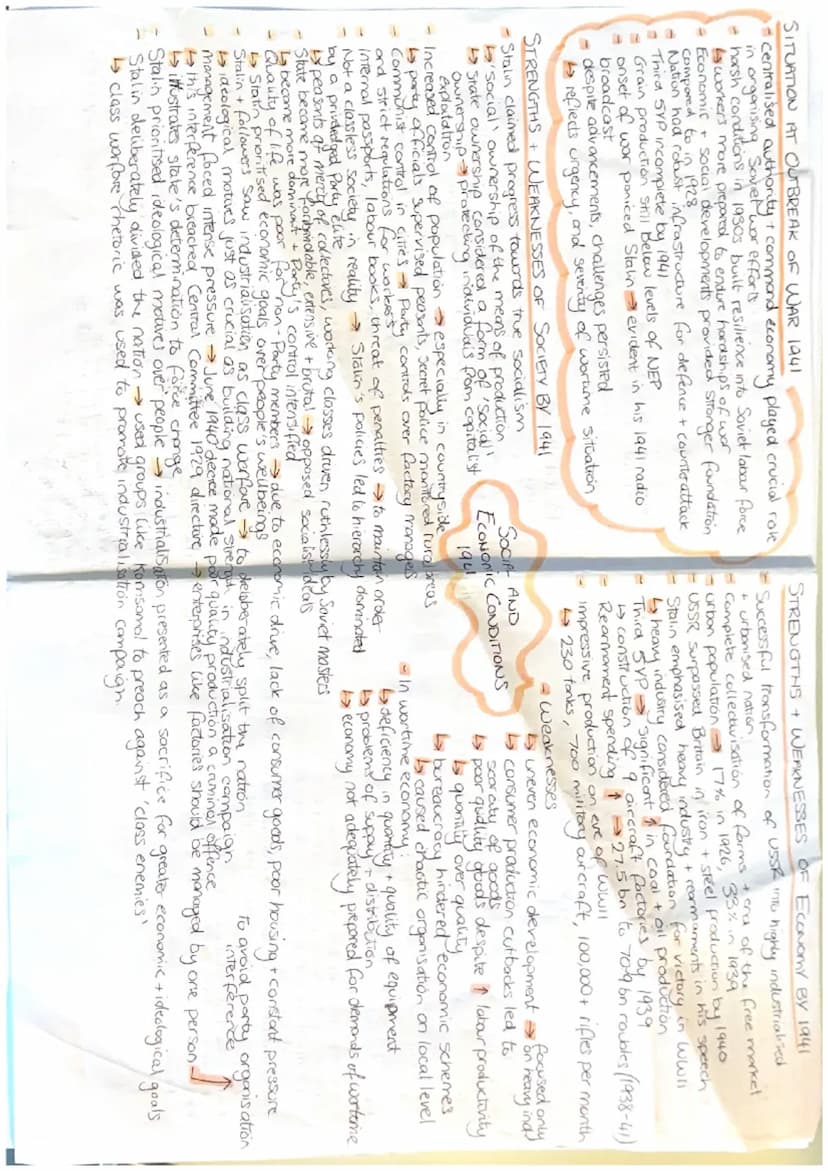 SITUATION AT OUTBREAK OF WAR 1941
- Centralised authority + command economy played crucial role
in organising Soviet war efforts
- harsh conditions in 1930s built resilience into Soviet labour force
↳ workers more prepared to endure hardships of war
- Economic + social developments provided stronger foundation
compared to in 1928
- Nation had robust infrastructure for defence + counterattack
- Third 5YP incomplete by 1941
- Grain production still below levels of NEP
- onset of war panicked Stalin → evident in his 1941 radio
broadcast
- despite advancements, challenges persisted
↳ reflects urgency, and severity of wartime situation
STRENGTHS + WEAKNESSES OF SOCIETY BY 1941
- Stalin claimed progress towards true socialism
↳ 'social' ownership of the means of production
↳ State ownership considered a form of 'social'
ownership → protecting individuals from capitalist
exploitation
- Increased control of population → especially in countryside
↳ party officials supervised peasants, secret police monitored rural areas
- Communist control in cities → Party controls over factory managers
and strict regulations for workers
- internal passports, labour books, threat of penalties → to maintain order
- Not a classless society in reality → Stalin's policies led to hierarchy dominated
by a privileged Party elite
↳ peasants at mercy of collectives, working classes driven ruthlessly by Soviet masters
- State became more formidable, extensive + brutal → opposed socialist ideals
↳ become more dominant + Party's control intensified
- Quality of life was poor for non-Party members → due to economic drive, lack of consumer goods, poor housing + constant pressure
↳ Stalin prioritised economic goals over people's wellbeings
- Stalin + followers saw industrialisation as class warfare → to deliberately split the nation
↳ ideological motives just as crucial as building national strength in industrialisation campaign
- management faced intense pressure → June 1940 decree made poor quality production a criminal offence
↳ this interference breached Central Committee 1929 directive → enterprises like factories should be managed by one person →
To avoid party organisation
interference
↳ illustrates state's determination to force change
- Stalin prioritised ideological motives over people → industrialisation presented as a sacrifice for greater economic + ideological goals
- Stalin deliberately divided the nation → used groups like Komsomol to preach against 'class enemies'
↳ class warfare rhetoric was used to promote industrialisation campaign
SOCIAL AND
ECONOMIC CONDITIONS
1941
STRENGTHS + WEAKNESSES OF ECONOMY BY 1941
- Successful transformation of USSR into highly industrialised
+ urbanised nation
- Complete collectivisation of farms + end of the free market
- urban population → 17% in 1926, 33% in 1939
- USSR surpassed Britain in iron + steel production by 1940
- Stalin emphasised heavy industry + rearmaments in his speech
↳ heavy industry considered foundation for victory in WWII
- Third 5YP → significant ↑ in coal + oil production
↳ construction of 9 aircraft factories by 1939
- Rearmament spending ↑ → 27.5 bn to 70.9 bn roubles (1938-41)
- impressive production on eve of WWII
↳ 230 tanks, 700 military aircraft, 100,000+ rifles per month
- Weaknesses
↳ uneven economic development → focused only
on heavy ind
↳ consumer production cutbacks led to
scarcity of goods
↳ poor quality goods despite ↑ labour productivity
↳ quantity over quality
↳ bureaucracy hindered economic schemes
↳ caused chaotic organisation on local level
- In wartime economy:
↳ deficiency in quantity + quality of equipment
↳ problems of supply + distribution
↳ economy not adequately prepared for demands of wartime